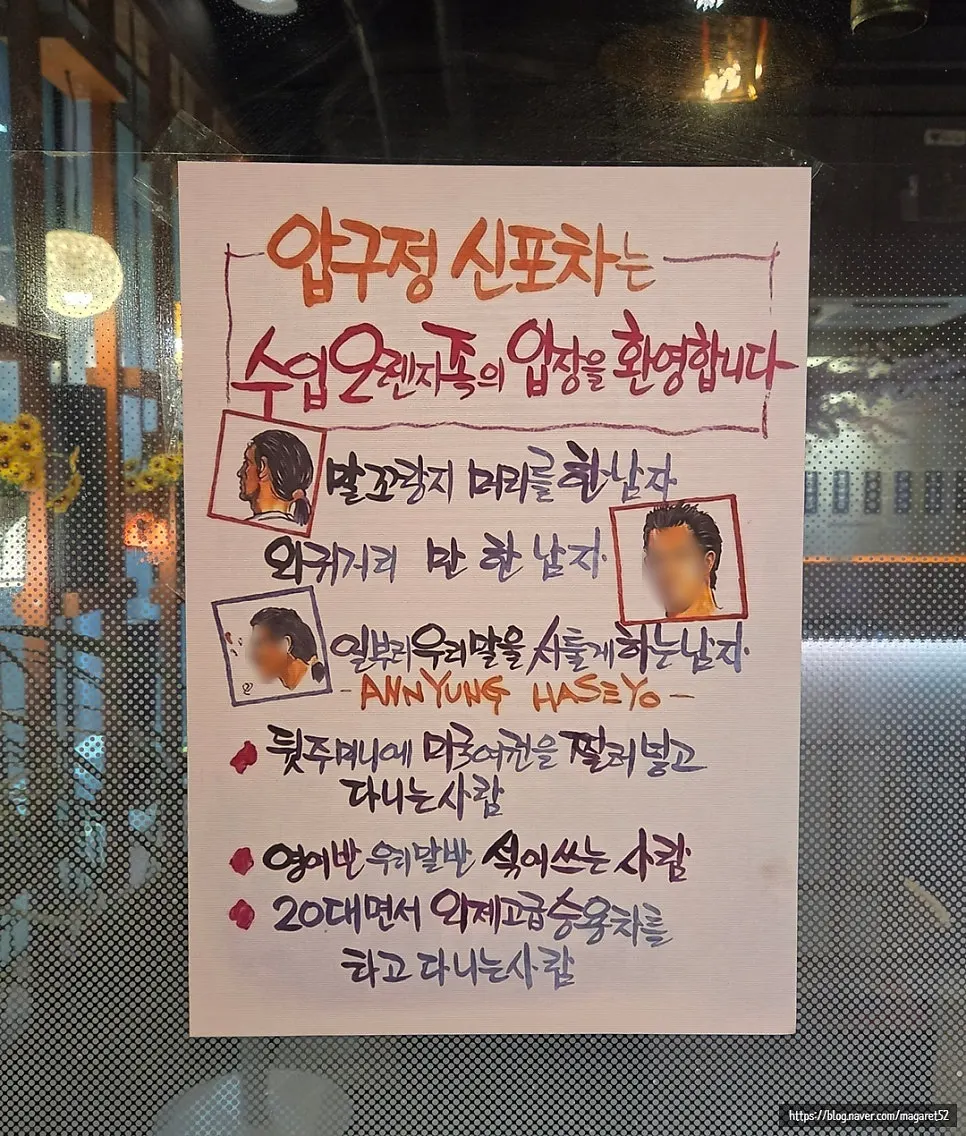 압구정 신포차는
수입오렌지족의 입장을 환영합니다
말조랑지 머리를 한 남자
외귀거리 만 한 남자.
일부러 우리말을 서툴게하는남자.
- ANNYUNG HASEYO -
뒷주머니에 미국여권을 찔러넣고
다니는사람
영어반 우리말반 섞어쓰는 사람
20대면서 외제고급승용차를
타고 다니는사람
https://blog.naver.com/magaret52